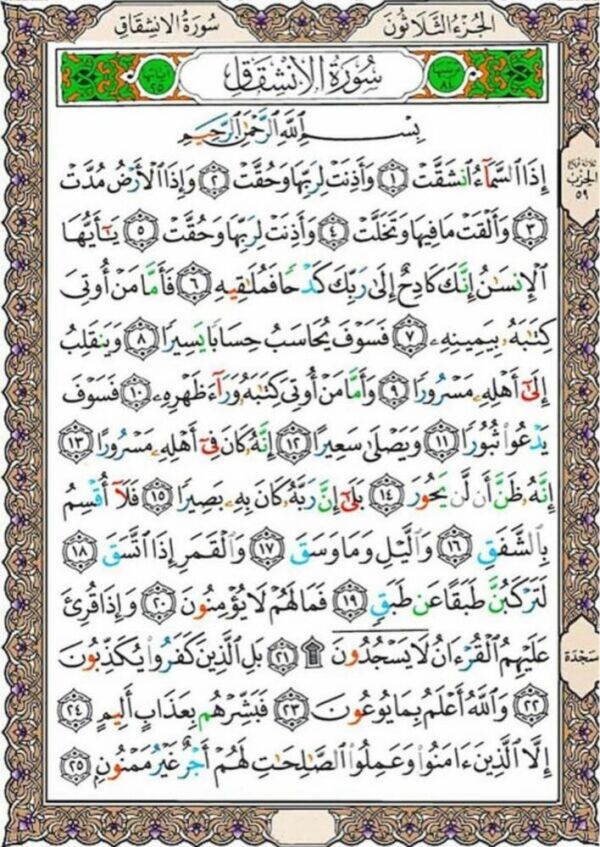 الجزء الثلاثون
سورة الانشقاق
آياتها ٢٥
سورة الانشقاق
ترتيبها ٨٤
بِسْمِ ٱللَّهِ ٱلرَّحْمَٰنِ ٱلرَّحِيمِ
إِذَا ٱلسَّمَآءُ ٱنشَقَّتْ ١ وَأَذِنَتْ لِرَبِّهَا وَحُقَّتْ ٢ وَإِذَا ٱلْأَرْضُ مُدَّتْ
٣ وَأَلْقَتْ مَا فِيهَا وَتَخَلَّتْ ٤ وَأَذِنَتْ لِرَبِّهَا وَحُقَّتْ ٥ يَٰٓأَيُّهَا
ٱلْإِنسَٰنُ إِنَّكَ كَادِحٌ إِلَىٰ رَبِّكَ كَدْحًا فَمُلَٰقِيهِ ٦ فَأَمَّا مَنْ أُوتِىَ
كِتَٰبَهُۥ بِيَمِينِهِۦ ٧ فَسَوْفَ يُحَاسَبُ حِسَابًا يَسِيرًا ٨ وَيَنقَلِبُ
إِلَىٰٓ أَهْلِهِۦ مَسْرُورًا ٩ وَأَمَّا مَنْ أُوتِىَ كِتَٰبَهُۥ وَرَآءَ ظَهْرِهِۦ ١٠ فَسَوْفَ
يَدْعُوا۟ ثُبُورًا ١١ وَيَصْلَىٰ سَعِيرًا ١٢ إِنَّهُۥ كَانَ فِىٓ أَهْلِهِۦ مَسْرُورًا ١٣
إِنَّهُۥ ظَنَّ أَن لَّن يَحُورَ ١٤ بَلَىٰٓ إِنَّ رَبَّهُۥ كَانَ بِهِۦ بَصِيرًا ١٥ فَلَآ أُقْسِمُ
بِٱلشَّفَقِ ١٦ وَٱلَّيْلِ وَمَا وَسَقَ ١٧ وَٱلْقَمَرِ إِذَا ٱتَّسَقَ ١٨
لَتَرْكَبُنَّ طَبَقًا عَن طَبَقٍ ١٩ فَمَا لَهُمْ لَا يُؤْمِنُونَ ٢٠ وَإِذَا قُرِئَ
عَلَيْهِمُ ٱلْقُرْءَانُ لَا يَسْجُدُونَ ۩ ٢١ بَلِ ٱلَّذِينَ كَفَرُوا۟ يُكَذِّبُونَ
٢٢ وَٱللَّهُ أَعْلَمُ بِمَا يُوعُونَ ٢٣ فَبَشِّرْهُم بِعَذَابٍ أَلِيمٍ ٢٤
إِلَّا ٱلَّذِينَ ءَامَنُوا۟ وَعَمِلُوا۟ ٱلصَّٰلِحَٰتِ لَهُمْ أَجْرٌ غَيْرُ مَمْنُونٍۭ ٢٥
الحزب
٥٩
سجدة